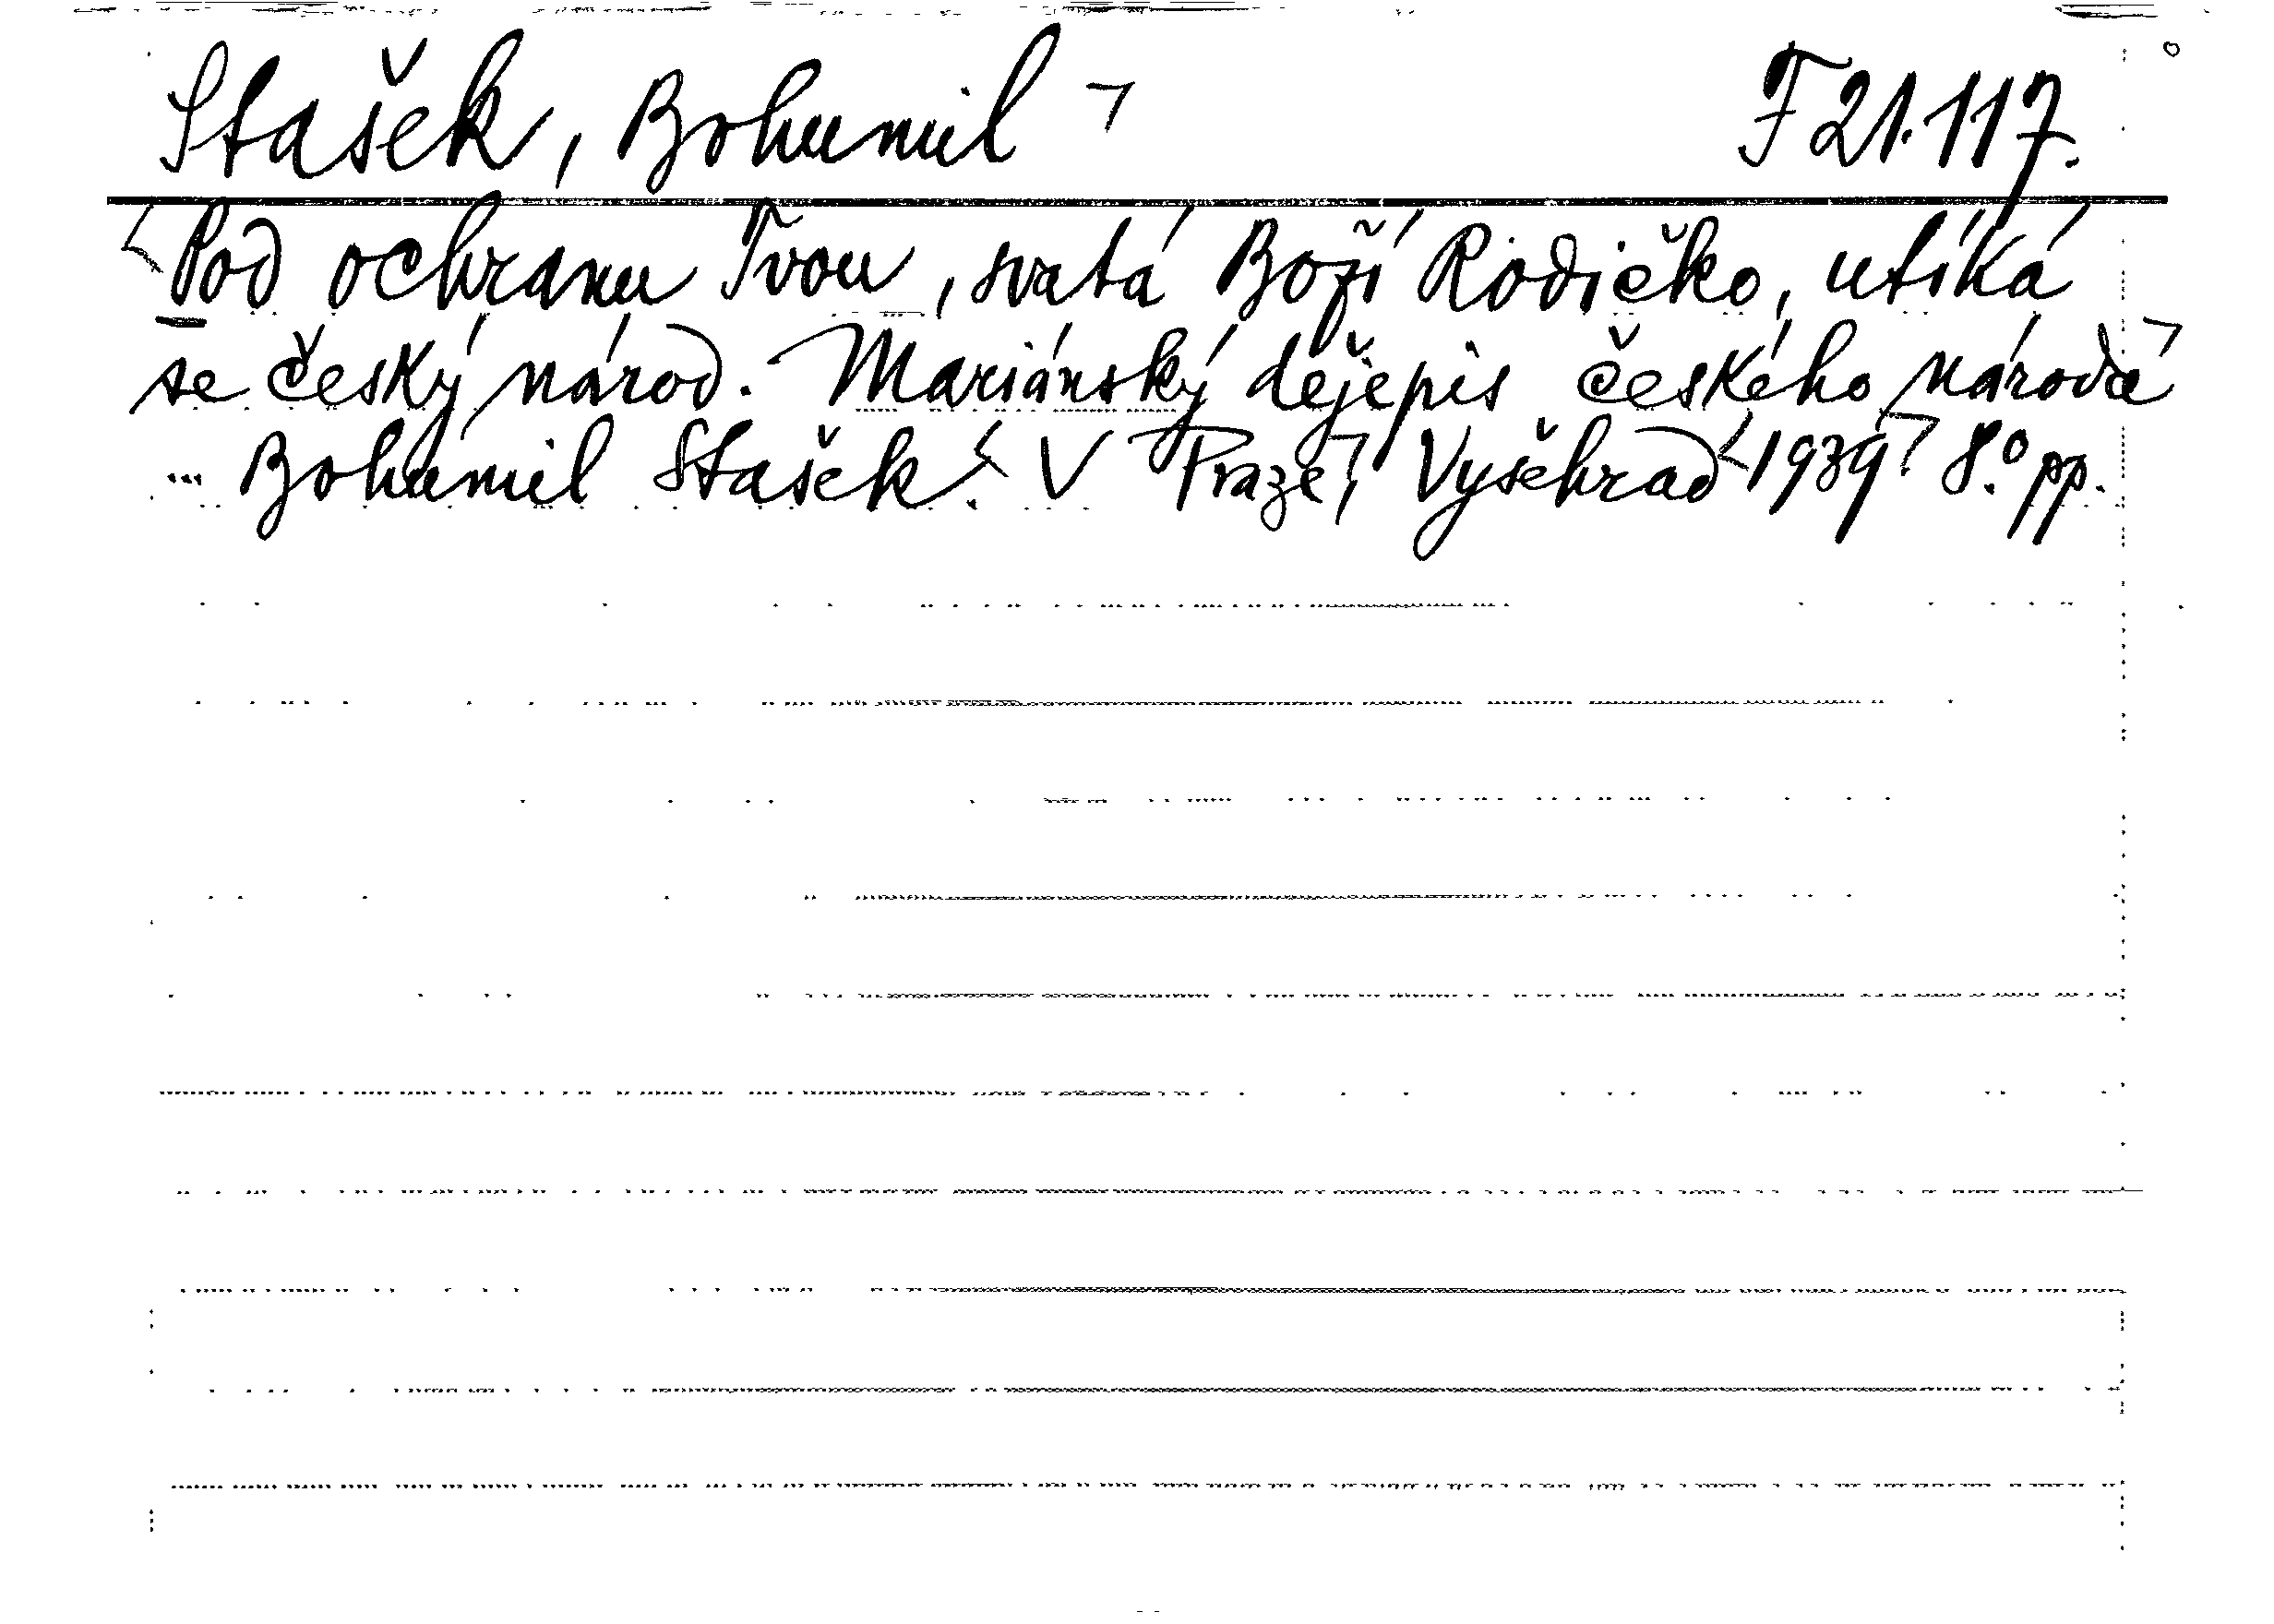 Stašek, Bohumil ¬ F 21.117.
Pod ochranu Tvou, svatá Boží Rodičko, utíká
se český národ. Mariánský dějepis českého národa
... Bohumil Stašek. V Praze, Vyšehrad 1939. 8.° pp.